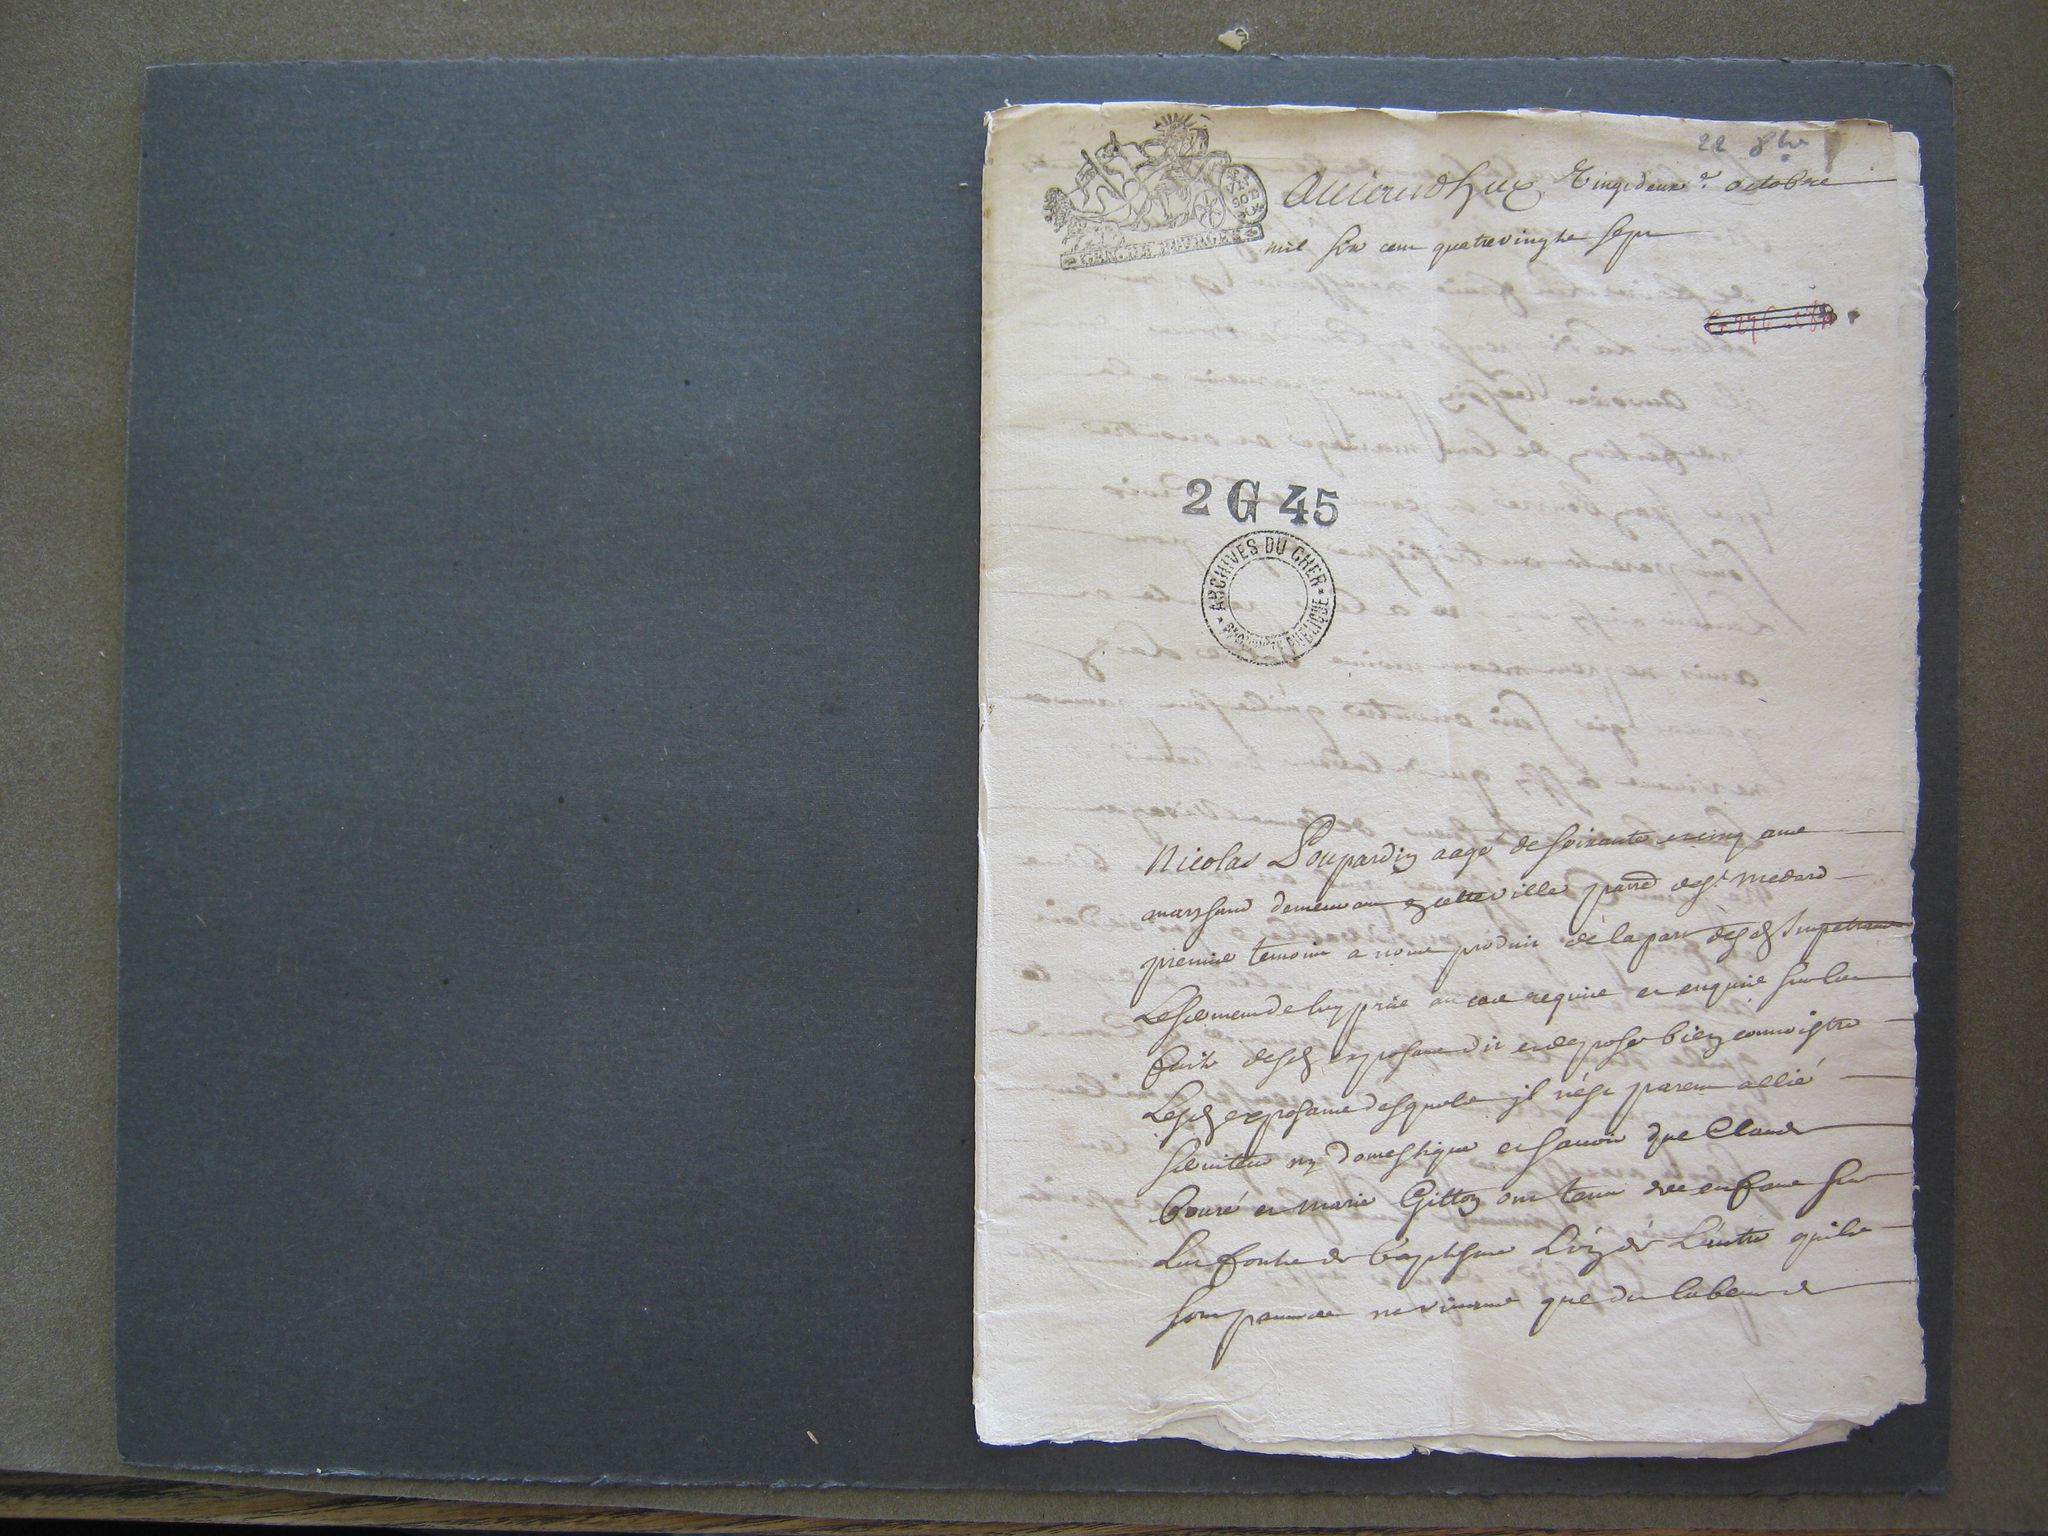 22 8bre
Aujourdhuy Vingtdeuxe octobre
mil six cent quatrevingts sept
GEN DE BOURGES
2 G 45
ARCHIVES DU CHER
PROPRIÉTÉ PUBLIQUE
Nicolas Poupardin aagé de soixante et cinq ans
marchand demeurant en cette ville parr. de St. Medard
premier temoin a nous produit de la part desd. Impetrans
Le serment de luy pris au cas requis et enquis sur les
faits desd. exposans dit et depose bien connoistre
Lesd. exposans desquels il n'est parent allié
serviteur ny domestique et sauoir que Claude
bouré et marie Gitton ont tenu des enfans sur
Les fonts de baptesme L'un de L'autre quils
sont pauures ne viuans que du labeur de